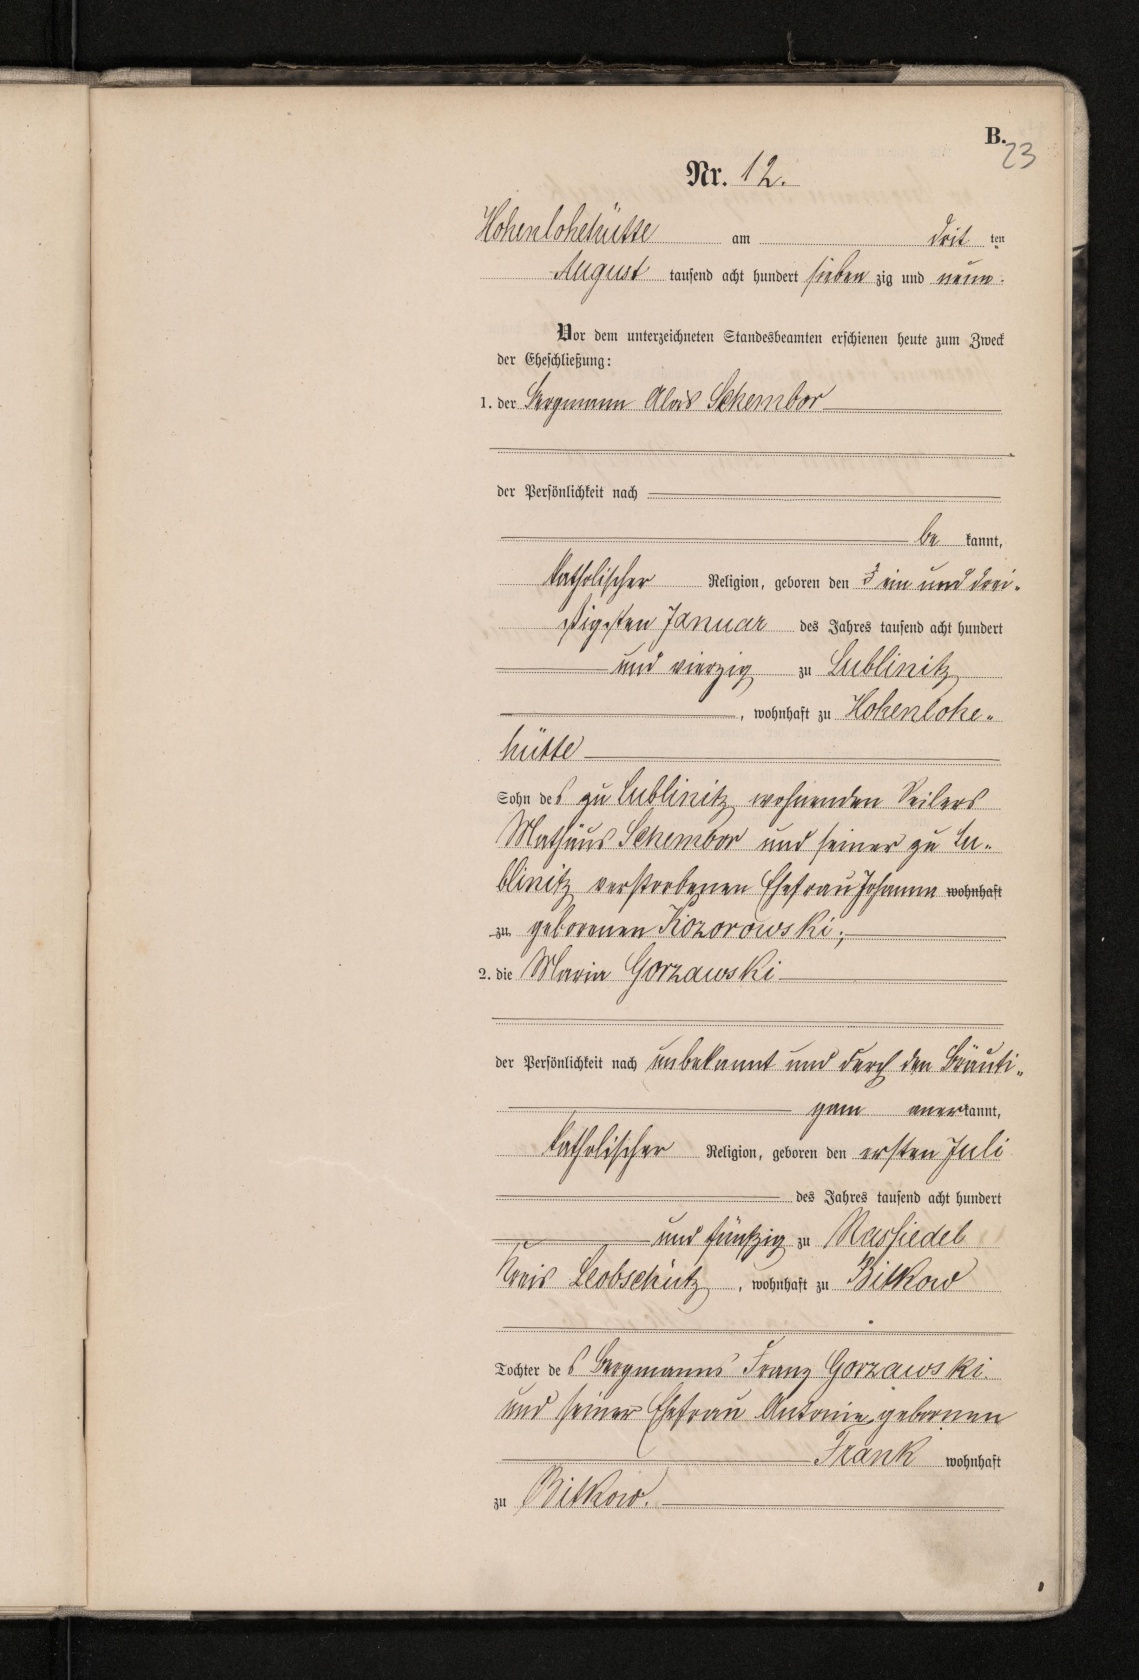 B.
23
Nr. 12.
Hohenlohehütte am drit ten
August tausend acht hundert sieben zig und neun.
Vor dem unterzeichneten Standesbeamten erschienen heute zum Zweck
der Eheschließung:
1. der Bergmann Alois Schembor
der Persönlichkeit nach
be kannt,
katholischer Religion, geboren den ein und drei-
ßigsten Januar des Jahres tausend acht hundert
und vierzig zu Lublinitz
, wohnhaft zu Hohenlohe-
hütte
Sohn des zu Lublinitz wohnenden Seilers
Mathäus Schembor und seiner zu Lu-
blinitz verstorbenen Ehefrau Johanna wohnhaft
zu geborenen Kozorowski;
2. die Maria Gorzawski
der Persönlichkeit nach unbekannt und durch den Bräuti-
gam anerkannt,
katholischer Religion, geboren den ersten Juli
des Jahres tausend acht hundert
und fünfzig zu Nassiedel
Kreis Leobschütz, wohnhaft zu Bitkow
Tochter des Bergmanns Franz Gorzawski
und seiner Ehefrau Antonie gebornen
Frank wohnhaft
zu Bitkow.